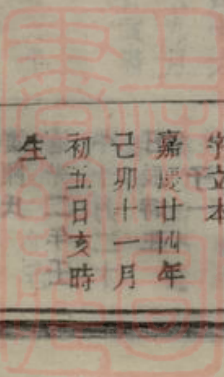 字文本
嘉慶廿四年
己卯十一月
初五日亥時
生